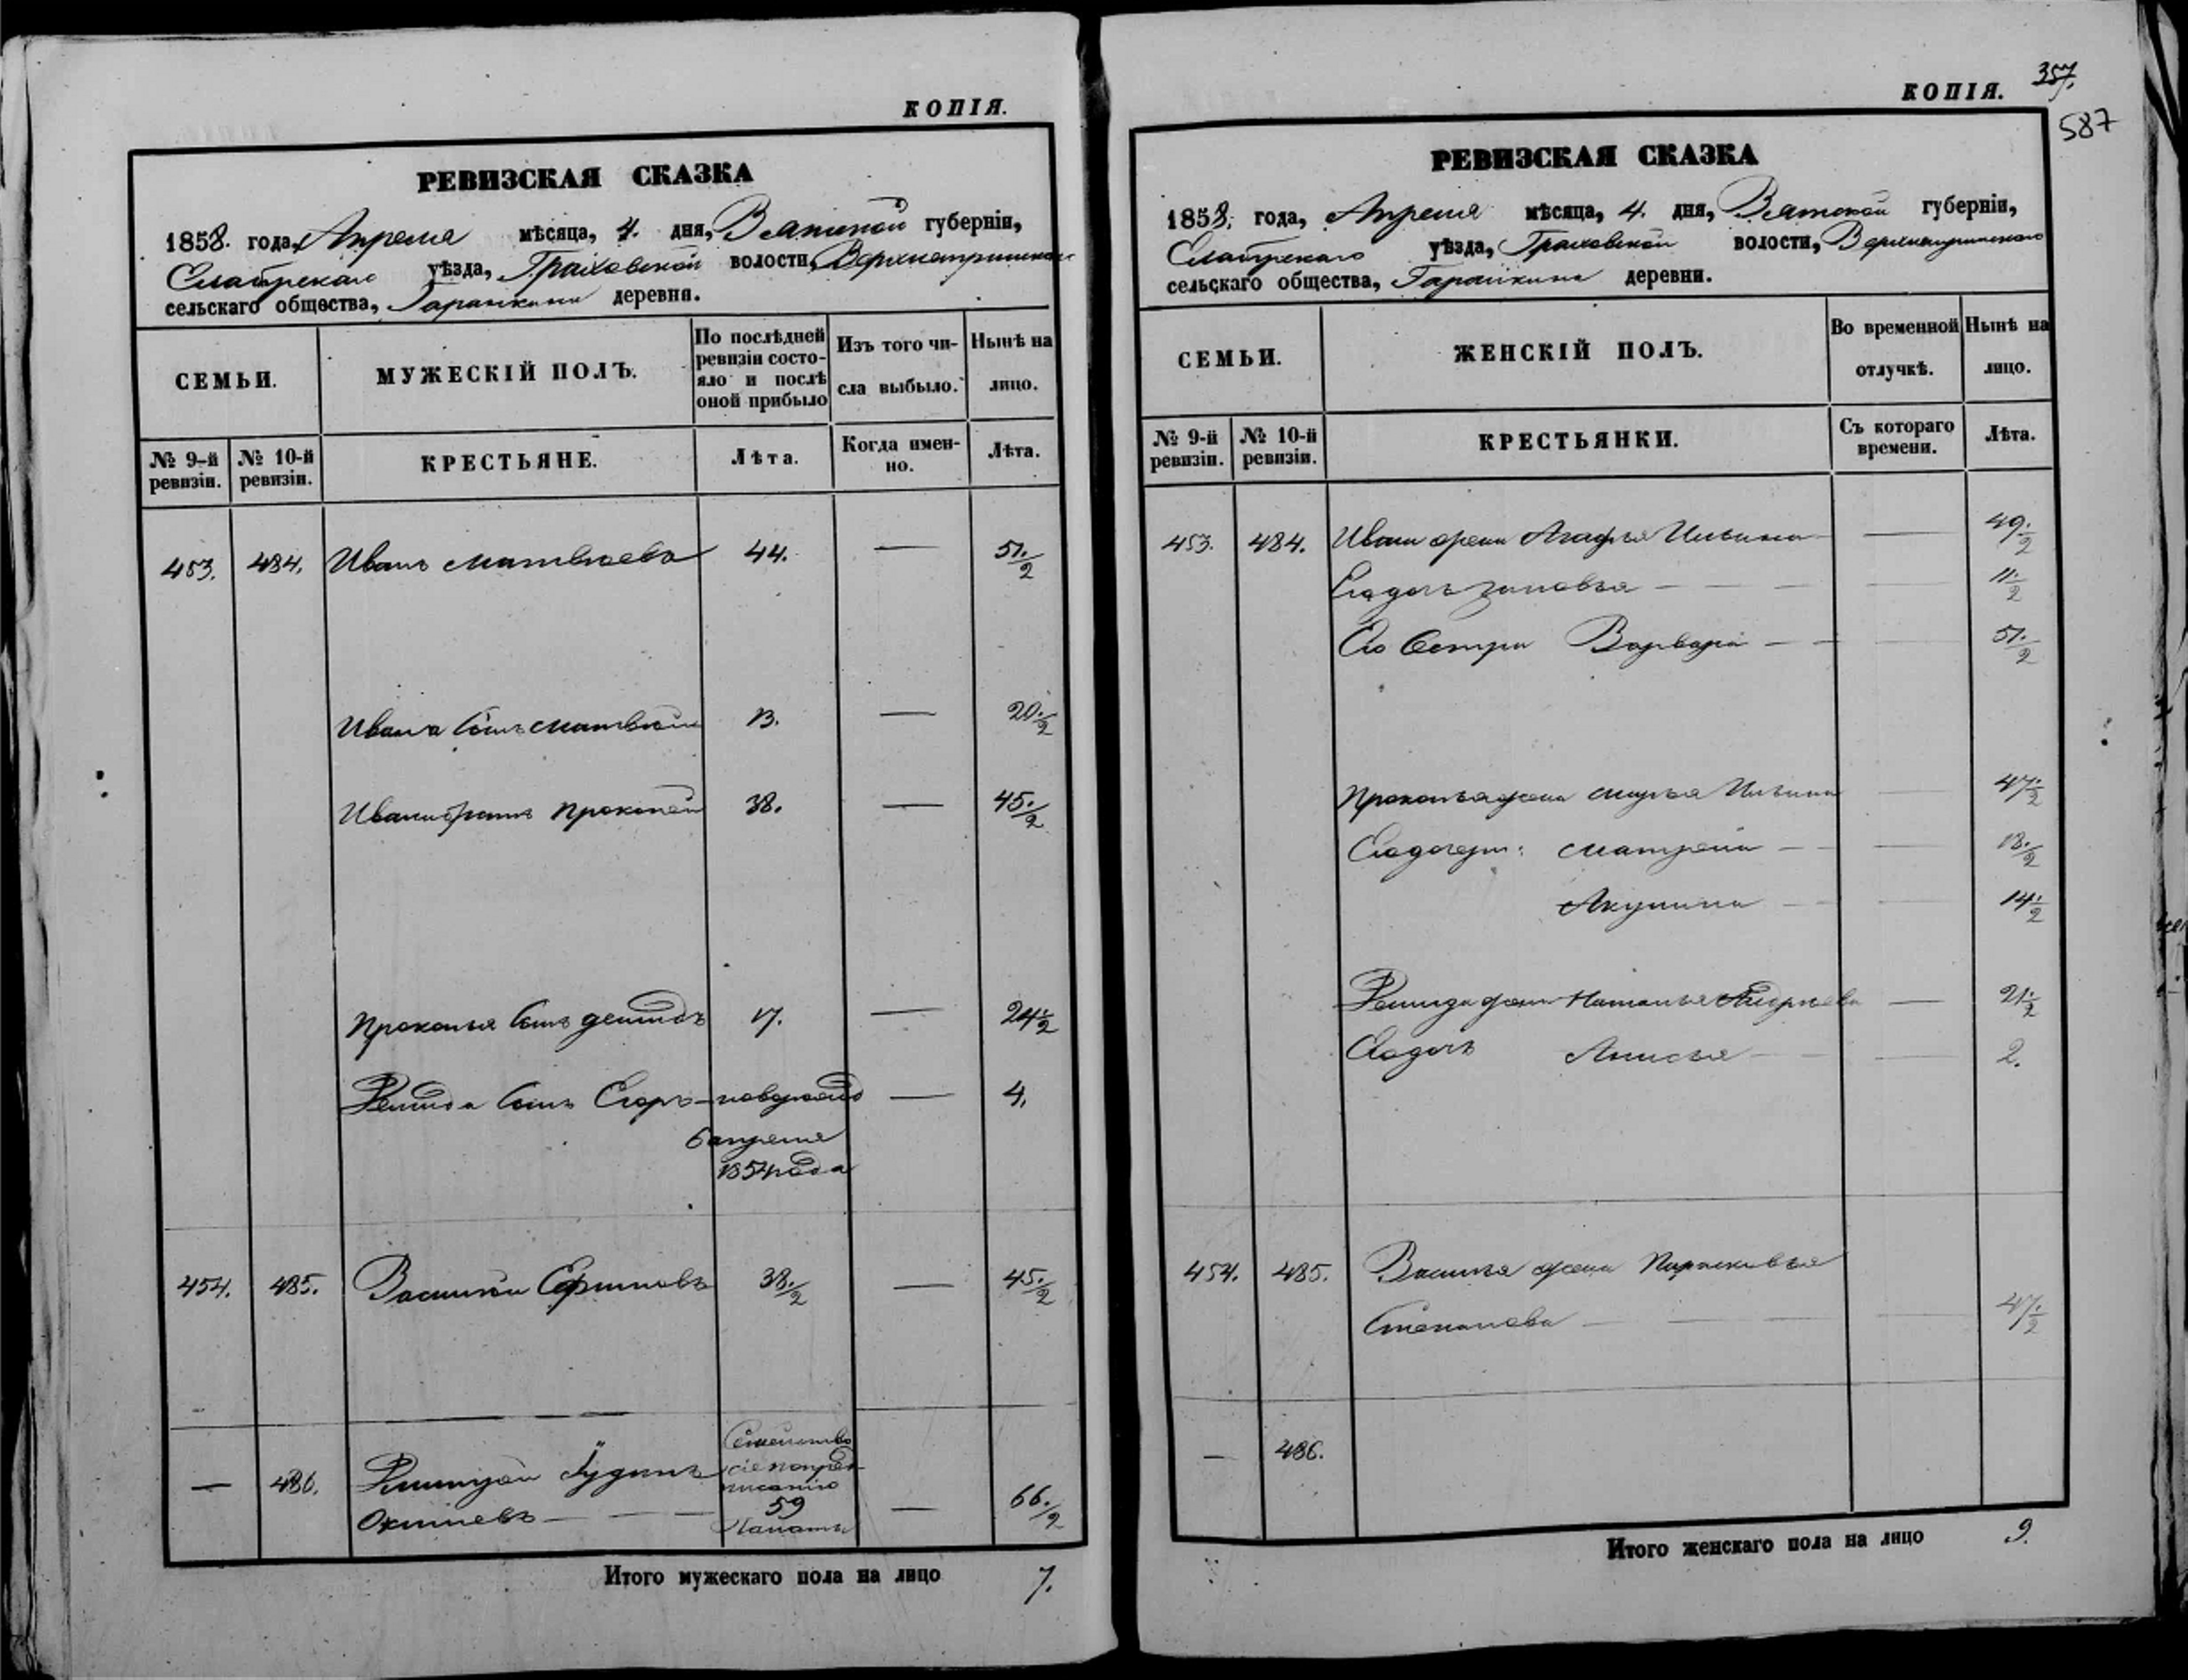 КОПІЯ.
РЕВИЗСКАЯ СКАЗКА
1858. года, Апреля мѣсяца, 4. дня, Вятской губерніи,
Елабужскаго уѣзда, Граховской волости,
сельскаго общества, деревня.
СЕМЬИ.
МУЖЕСКІЙ ПОЛЪ.
По послѣдней ревизіи состояло и послѣ оной прибыло
Изъ того числа выбыло.
Нынѣ на лицо.
№ 9-й ревизіи.
№ 10-й ревизіи.
КРЕСТЬЯНЕ.
Лѣта.
Когда именно.
Лѣта.
453. 484. Иванъ Матвѣевъ 44. — 51./2
Ивана сынъ Матвѣй 13. — 20./2
Ивана братъ Прокопей 38. — 45./2
Прокопья сынъ 17. — 24./2
сынъ Егоръ — новорожд — 4.
6 апреля
1854 года
454. 485. Василей Ефимовъ 38./2 — 45./2
— 486.
Семейство
сіе по пред
писанію
59
Палаты
— 66./2
Итого мужескаго пола на лицо 7.
357.
КОПІЯ.
587
РЕВИЗСКАЯ СКАЗКА
1858. года, Апреля мѣсяца, 4. дня, Вятской губерніи,
Елабужскаго уѣзда, Граховской волости,
сельскаго общества, деревни.
СЕМЬИ.
ЖЕНСКІЙ ПОЛЪ.
Во временной отлучкѣ.
Нынѣ на лицо.
№ 9-й ревизіи.
№ 10-й ревизіи.
КРЕСТЬЯНКИ.
Съ котораго времени.
Лѣта.
453. 484. Ивана жена Агафья Ильина — 49./2
Его дочь Зиновья — — — 11./2
Его сестра Варвара — — 51./2
Прокопья жена Марья Ильина — 47./2
Его дочери: Матрена — — 18./2
Акулина — — 14./2
жена Наталья Андреева — 21./2
Его дочь Анисья — — 2.
454. 485. Василья жена Парасковья
Степанова — — — 47./2
— 486.
Итого женскаго пола на лицо 9.